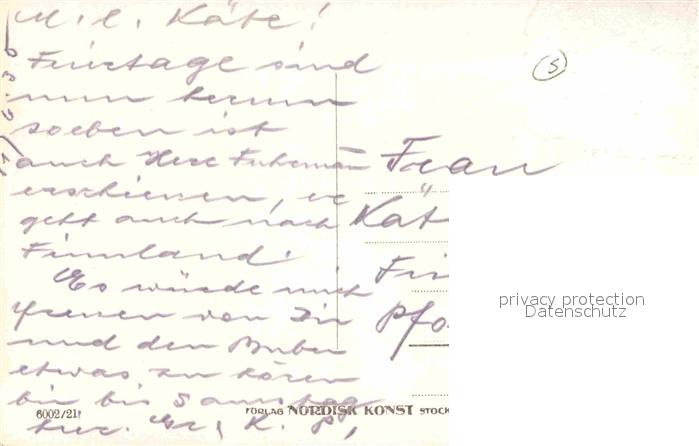 M. l. Käte!
Feiertage sind
nun herum
soeben ist
auch Herr Fuhrmann
erschienen, er
geht auch nach
Finnland.
Es würde mich
freuen von Dir
und den Buben
etwas zu hören
bin bis Samstag
hier. K.
Frau
Kät
Fi
Pfo
5
privacy protection
Datenschutz
6002/21
FÖRLAG NORDISK KONST STOCK